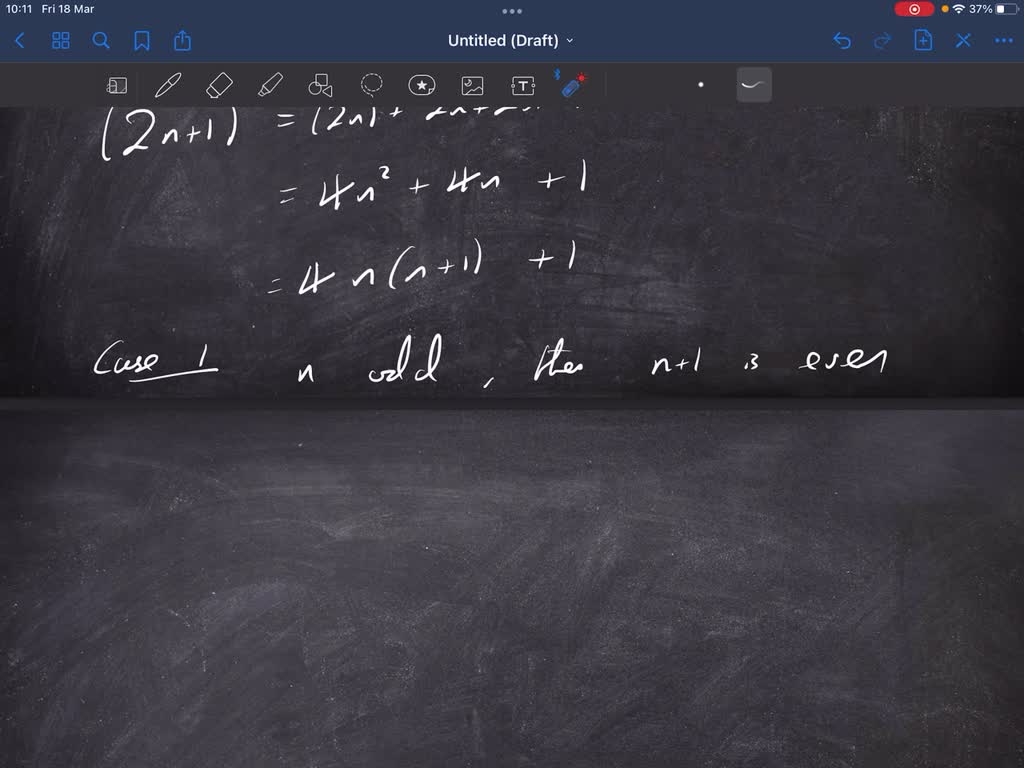 10:11 Fri 18 Mar 37%
Untitled (Draft)
T
(2n+1) = (2n) + 2n+2
= 4n² + 4n + 1
= 4n(n+1) + 1
Case 1 n odd, then n+1 is even